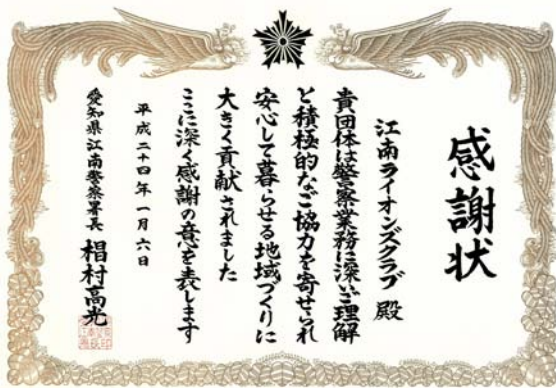 感謝状
江南ライオンズクラブ 殿
貴団体は警察業務に深いご理解
と積極的なご協力を寄せられ
安心して暮らせる地域づくりに
大きく貢献されました
ここに深く感謝の意を表します
平成二十四年一月六日
愛知県江南警察署長 椙村高光